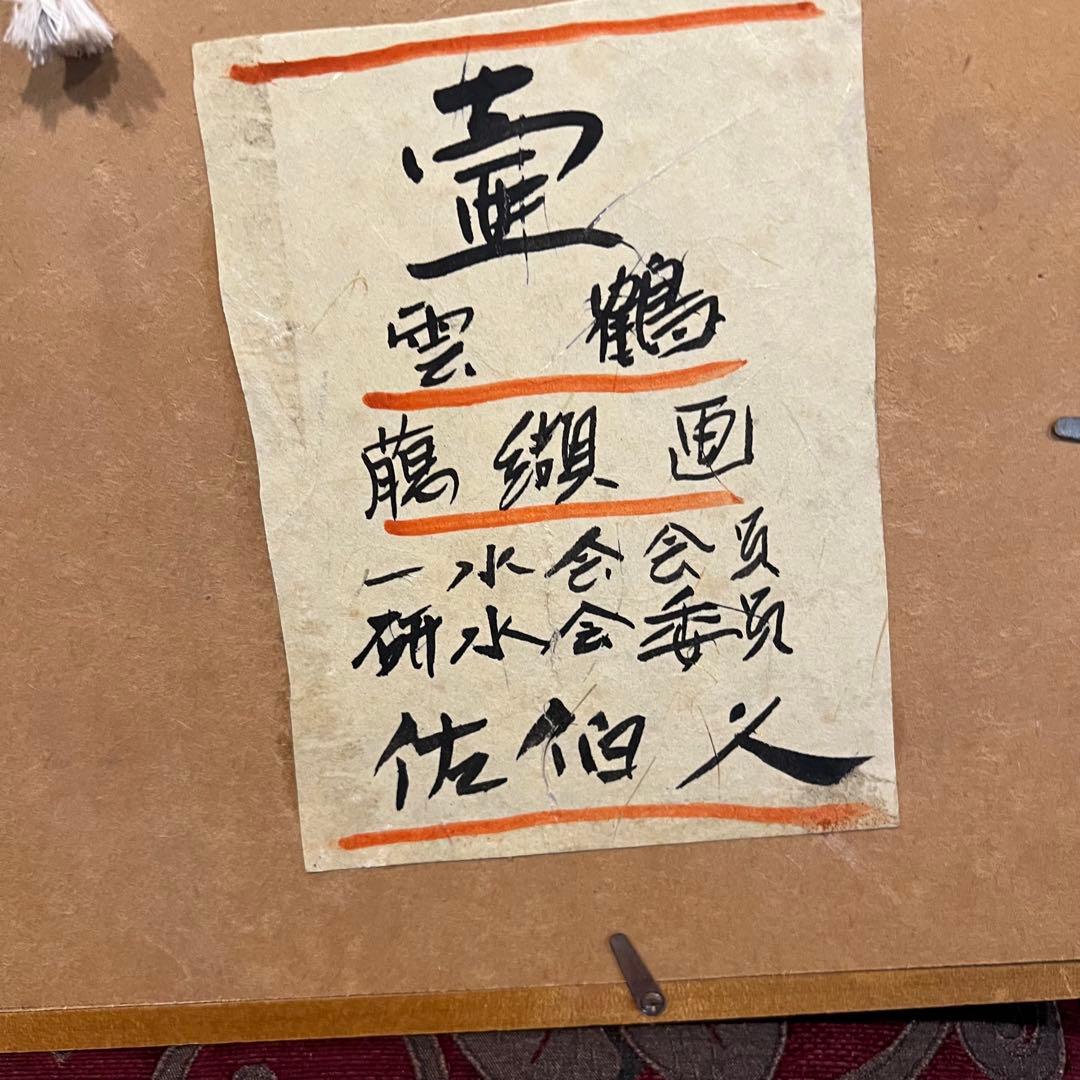 壷
雲鶴
﨟纈画
一水会会員
研水会委員
佐伯